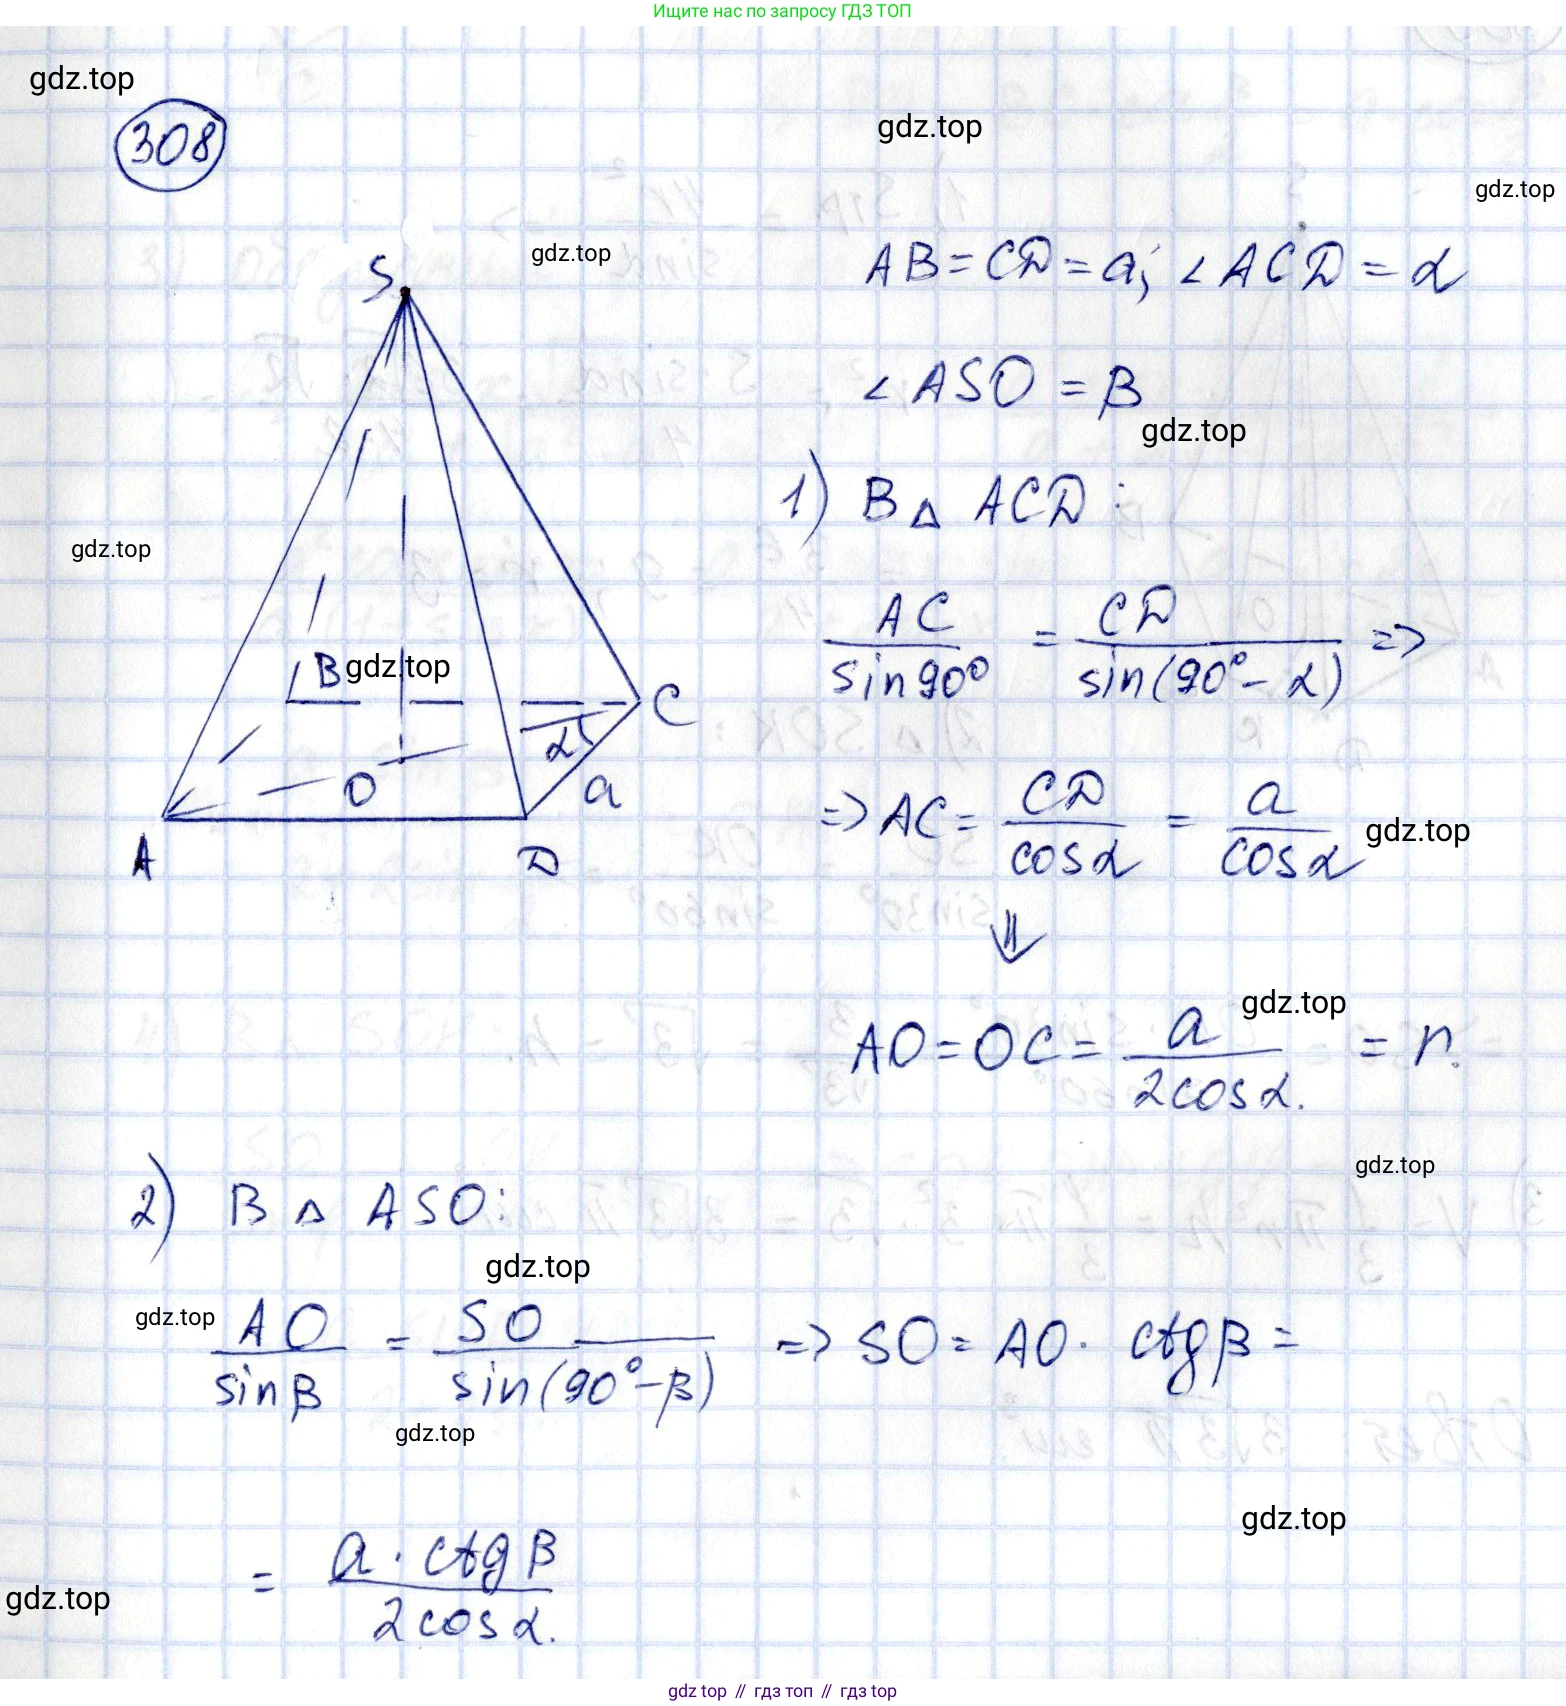 Ищите нас по запросу ГДЗ ТОП
gdz.top
308
gdz.top
gdz.top
gdz.top
S
AB = CD = a; ∠ACD = α
∠ASO = β
gdz.top
1) В △ ACD:
gdz.top
AC / sin90° = CD / sin(90° - α) =>
B
gdz.top
C
α
a
O
A
D
=> AC = CD / cosα = a / cosα
gdz.top
⇓
gdz.top
AO = OC = a / 2cosα. = r.
gdz.top
2) В △ ASO:
gdz.top
gdz.top
AO / sinβ = SO / sin(90° - β) => SO = AO · ctgβ =
gdz.top
gdz.top
= a · ctgβ / 2cosα.
gdz.top
gdz top // гдз топ // гдз top